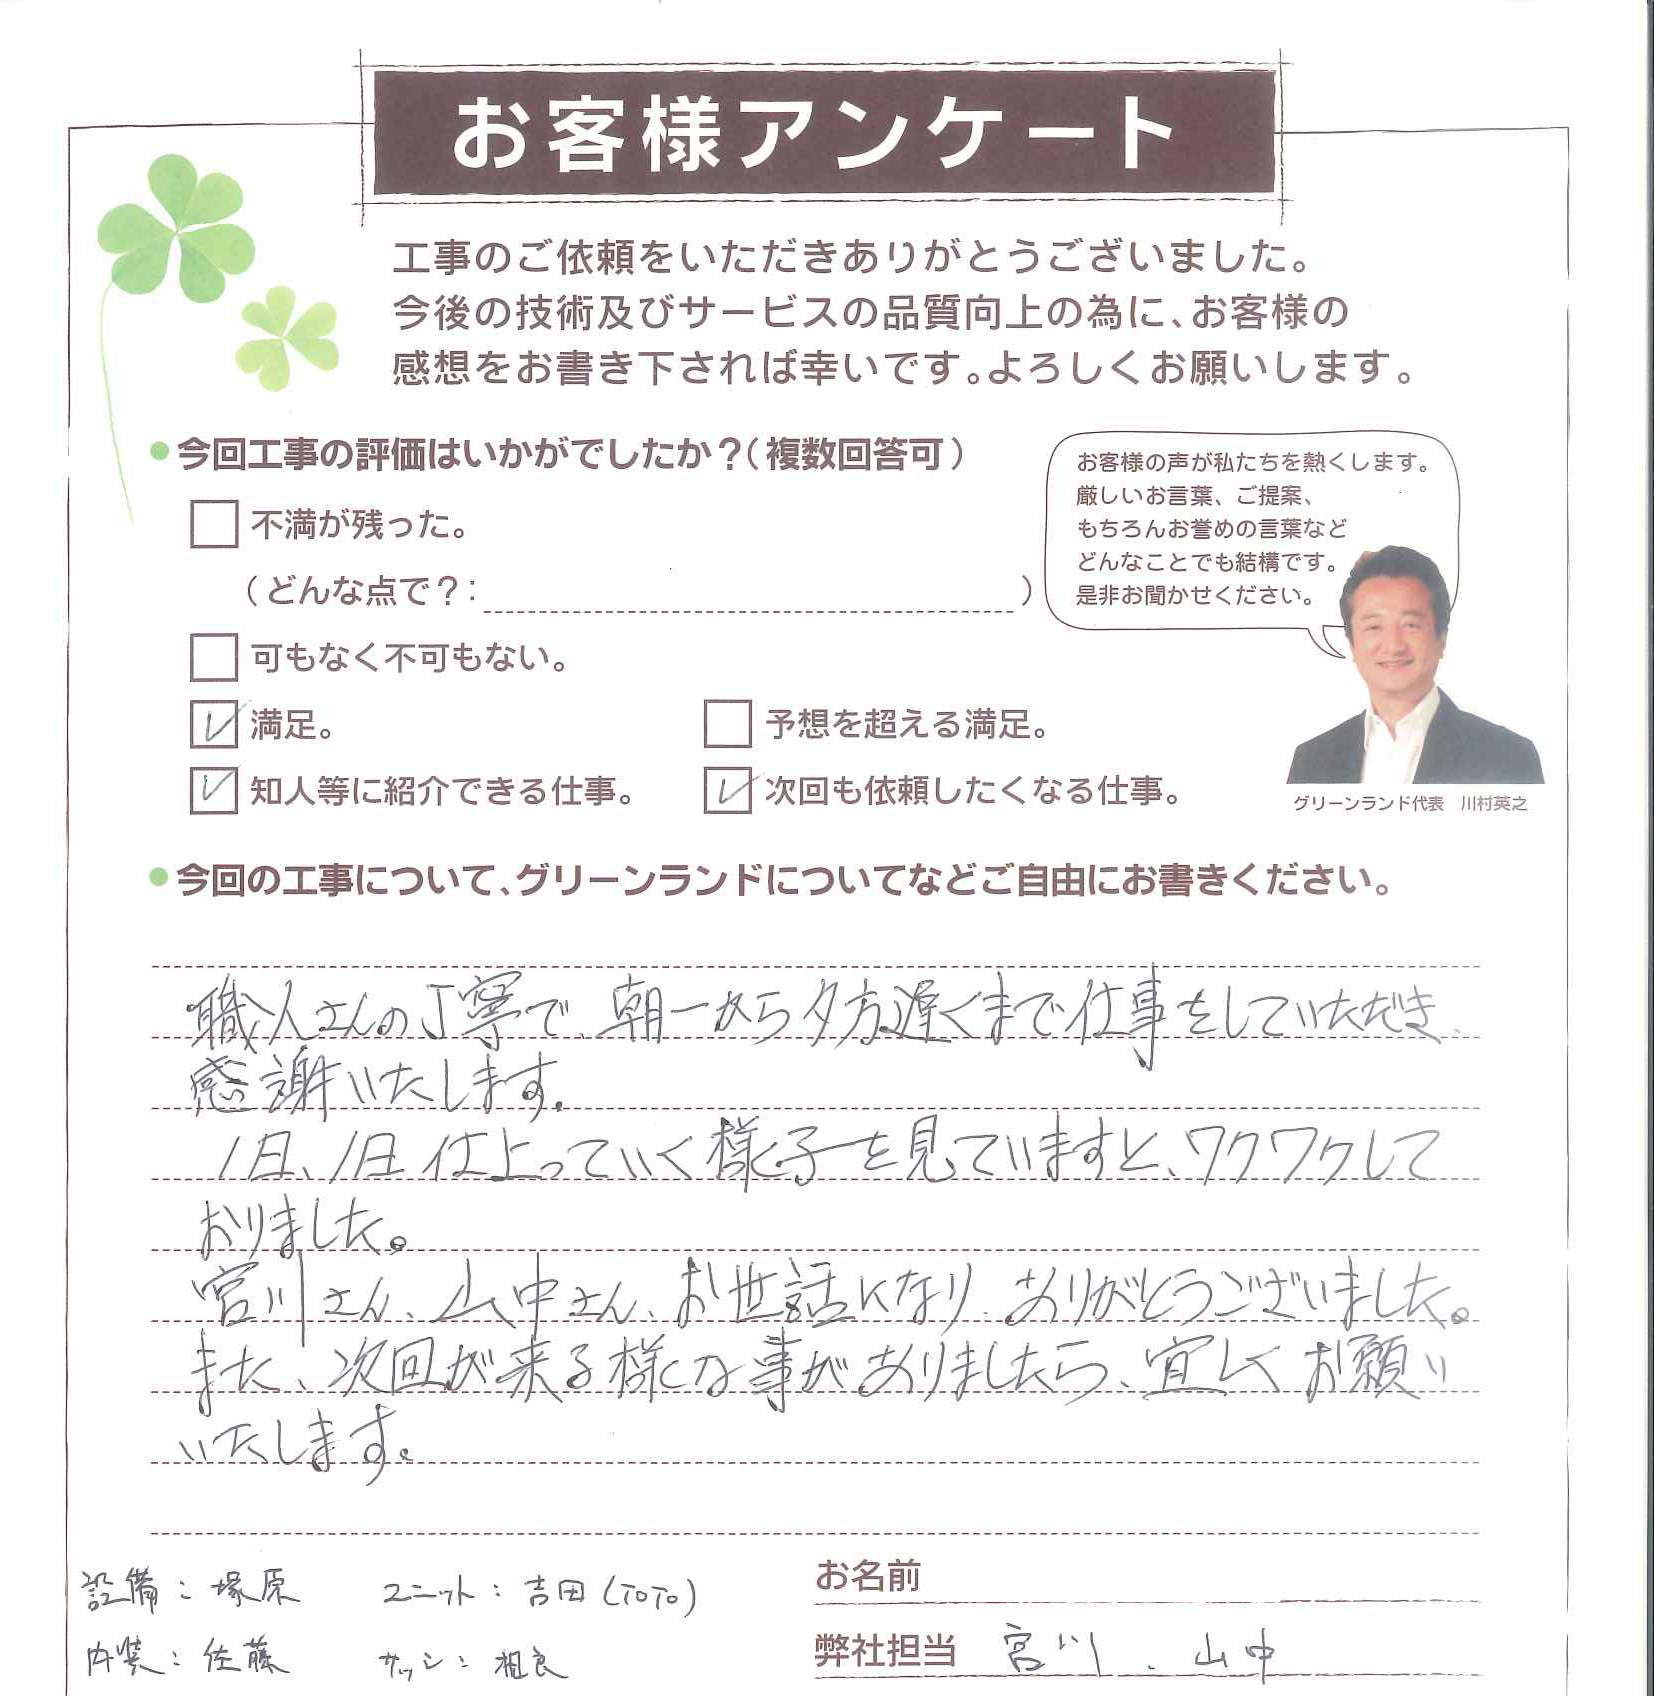 お客様アンケート
工事のご依頼をいただきありがとうございました。
今後の技術及びサービスの品質向上の為に、お客様の
感想をお書き下されば幸いです。よろしくお願いします。
今回工事の評価はいかがでしたか？（複数回答可）
不満が残った。
（どんな点で？：　）
可もなく不可もない。
満足。
予想を超える満足。
知人等に紹介できる仕事。
次回も依頼したくなる仕事。
お客様の声が私たちを熱くします。
厳しいお言葉、ご提案、
もちろんお誉めの言葉など
どんなことでも結構です。
是非お聞かせください。
グリーンランド代表　川村英之
今回の工事について、グリーンランドについてなどご自由にお書きください。
職人さんの丁寧で、朝一から夕方遅くまで仕事をしていただき、
感謝いたします。
1日、1日仕上っていく様子を見ていますと、ワクワクして
おりました。
宮川さん、山中さん、お世話になり、ありがとうございました。
また、次回が来る様な事がありましたら、宜しくお願い
いたします。
設備：塚原　ユニット：吉田（TOTO）
内装：佐藤　サッシ：相良
お名前
弊社担当　宮川、山中